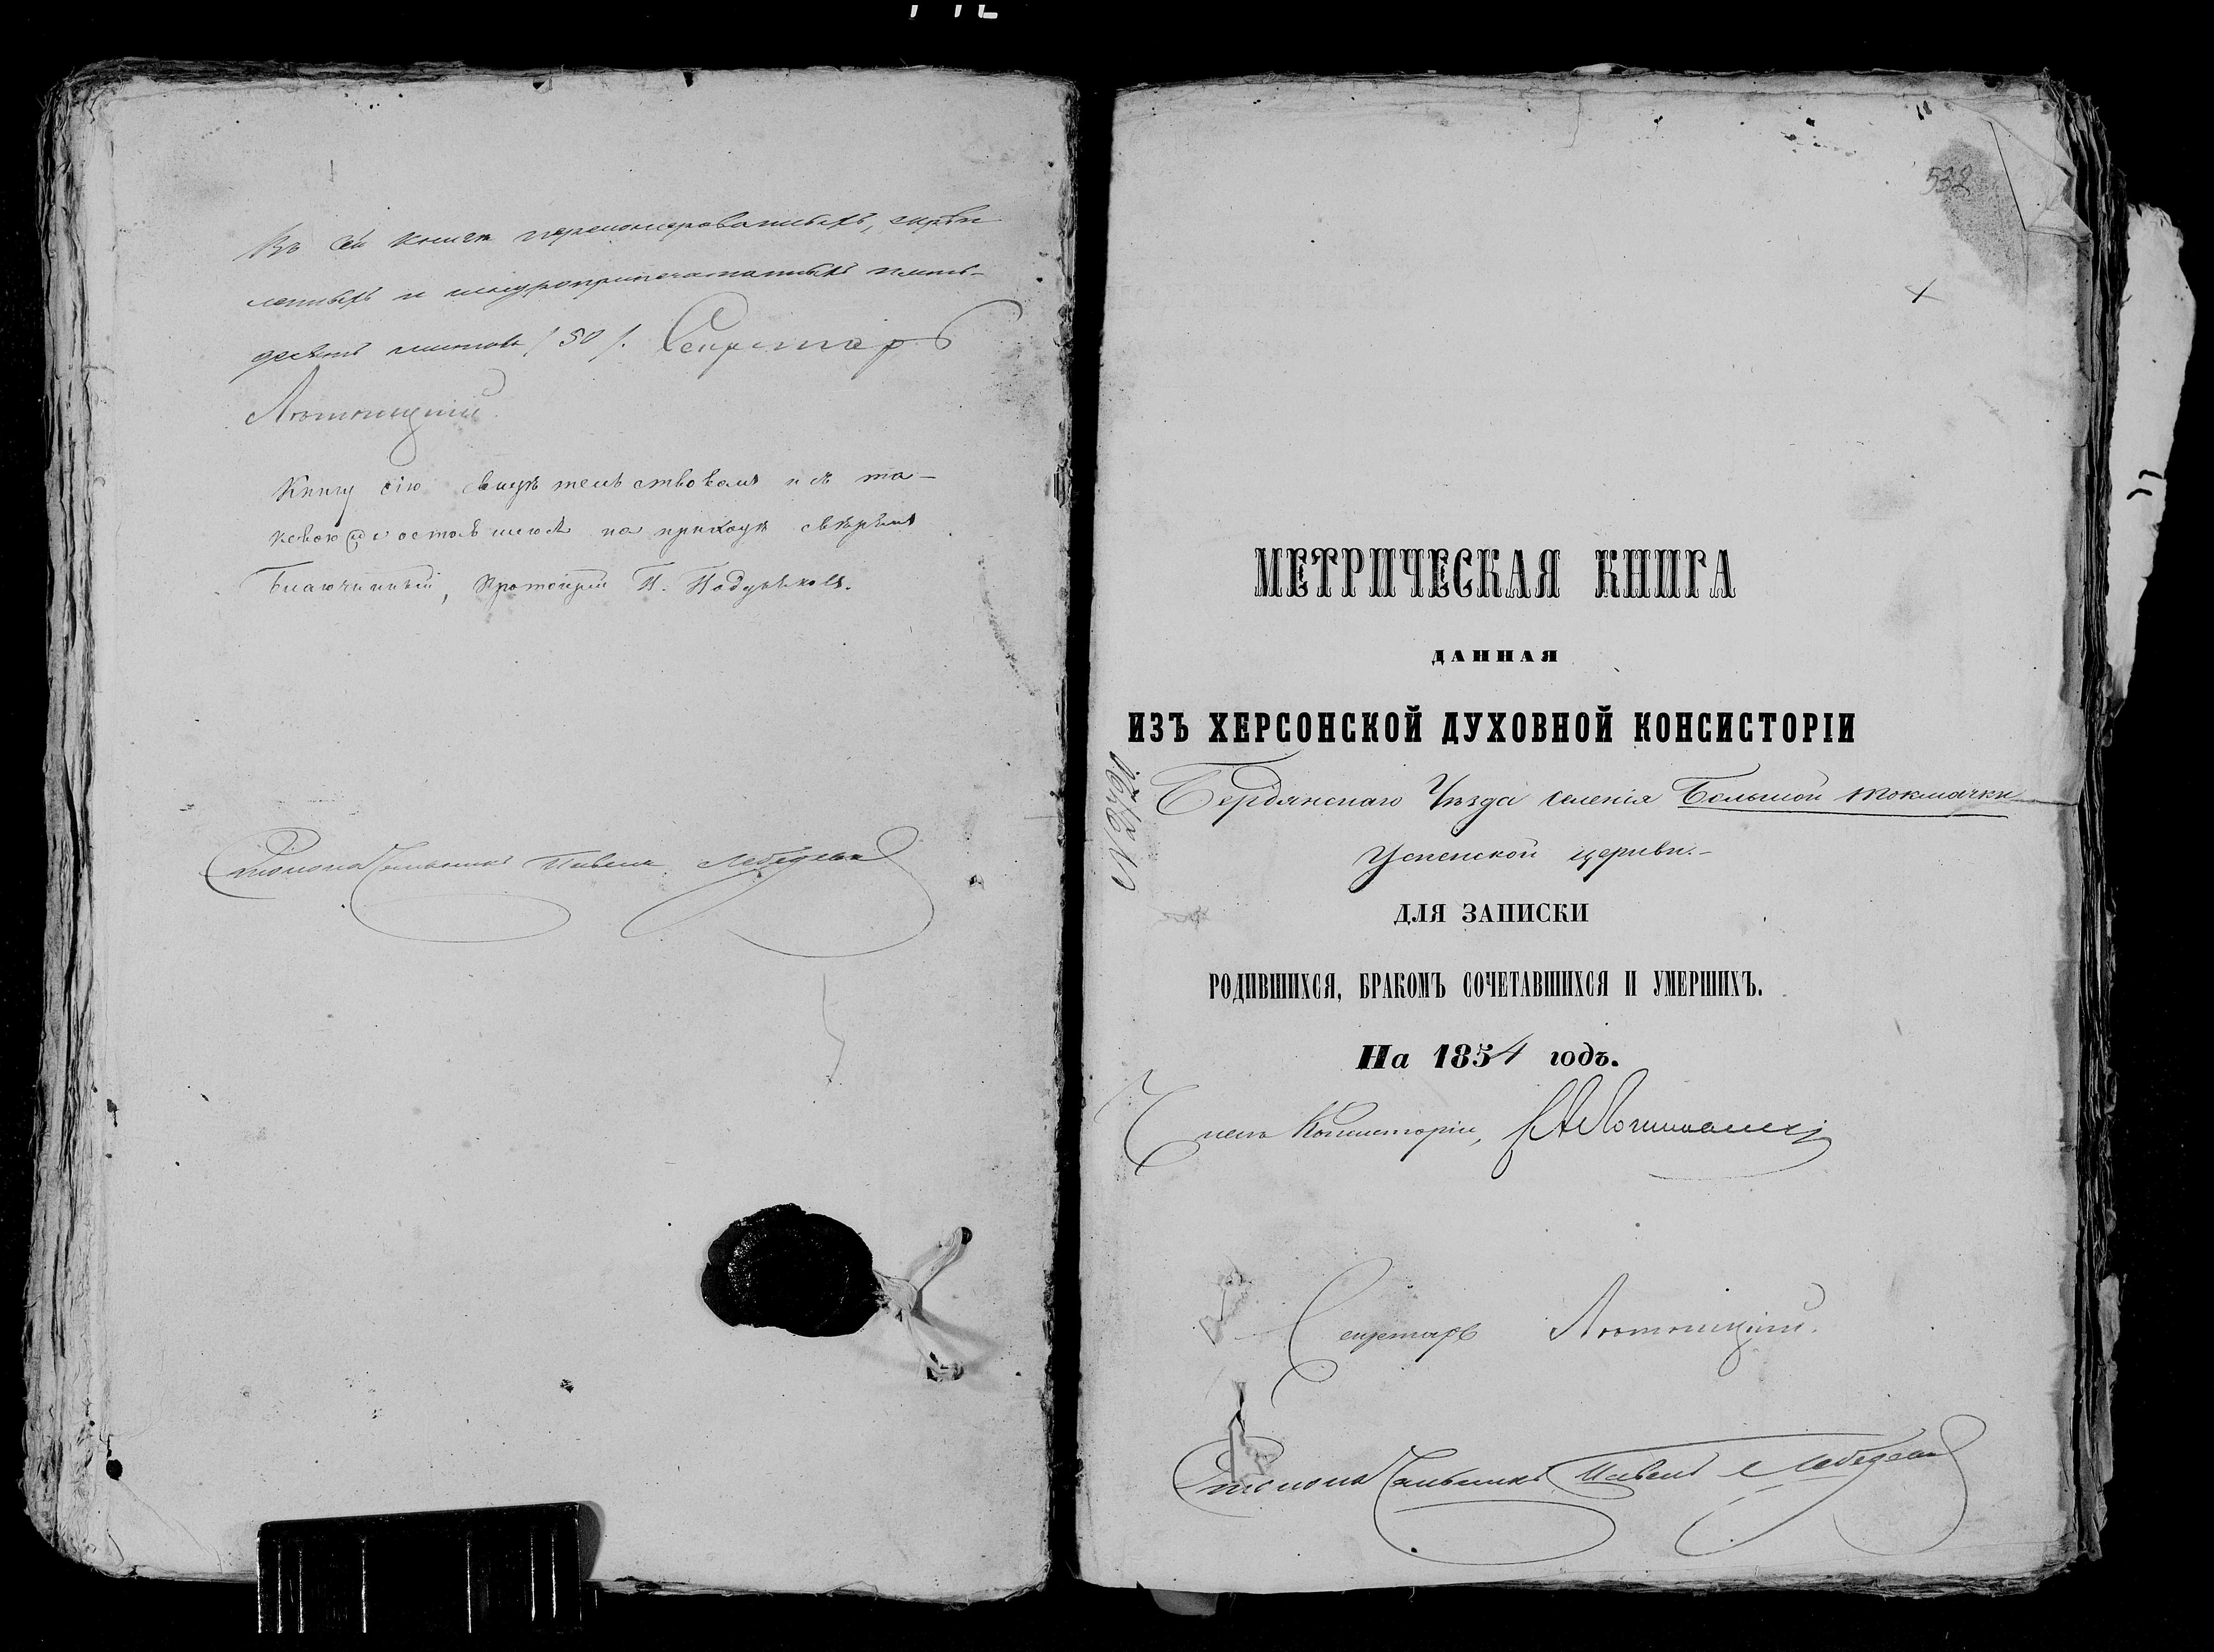 Въ сей книгѣ перенумерованныхъ, скрѣп
ленныхъ и шнуроприпечатанныхъ пять-
десятъ листовъ /50/. Секретарь
Книгу сію свидѣтельствовалъ и съ та-
ковою же оставшеюся на приходѣ свѣрялъ
Благочинный, Протоіерей П.
Столоначальникъ Павелъ Лебедевъ
532
МЕТРИЧЕСКАЯ КНИГА
ДАННАЯ
ИЗЪ ХЕРСОНСКОЙ ДУХОВНОЙ КОНСИСТОРІИ
№ 2720.
Бердянскаго Уѣзда селенія Большой Токмачки
Успенской церкви.-
ДЛЯ ЗАПИСКИ
РОДИВШИХСЯ, БРАКОМЪ СОЧЕТАВШИХСЯ И УМЕРШИХЪ.
На 1854 годъ.
Членъ Консисторіи,
Секретарь
Столоначальникъ Павелъ Лебедевъ